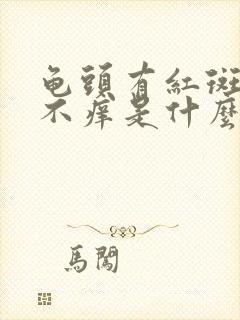 龟頭有紅斑
不痒是什麼
馬闖